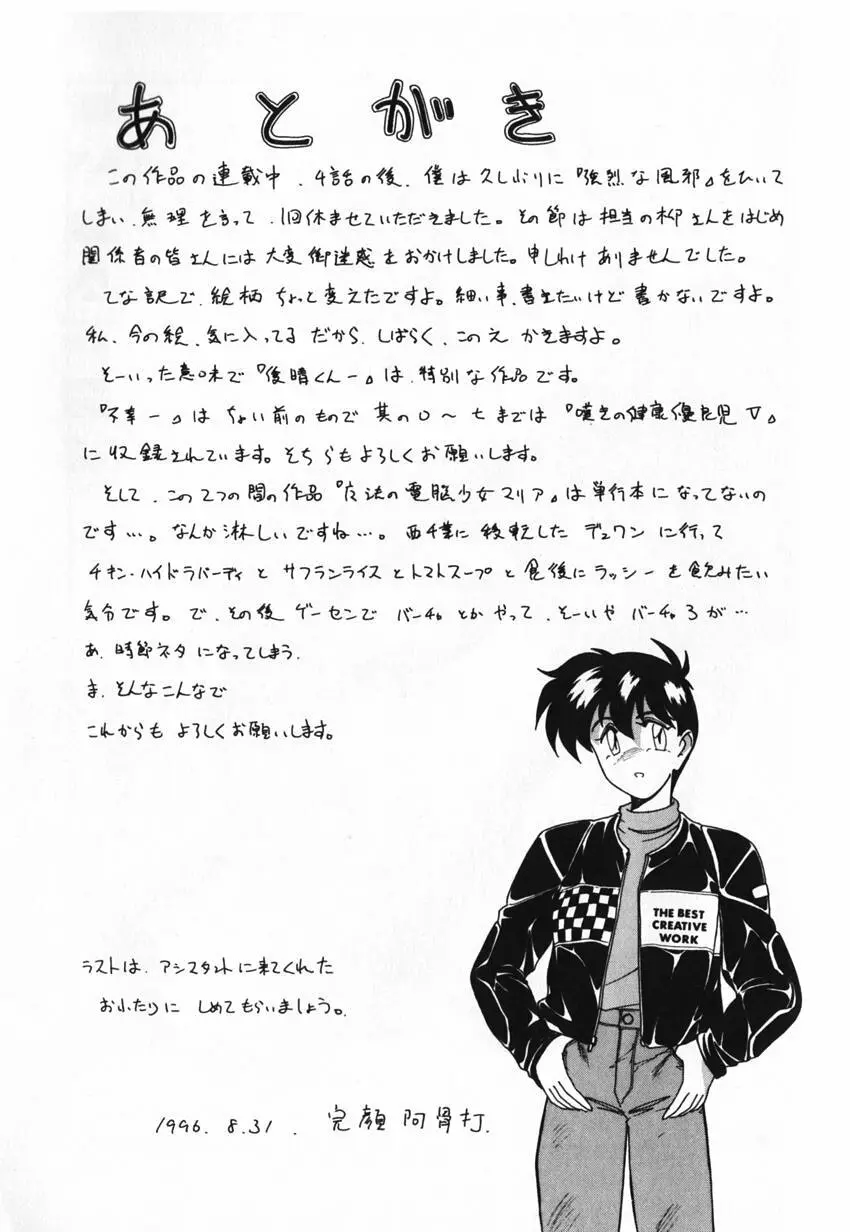 あとがき
この作品の連載中、4話の後、僕は久しぶりに『強烈な風邪』をひいて
しまい、無理を言って、1回休ませていただきました。その節は担当の柳さんをはじめ
関係者の皆さんには大変御迷惑をおかけしました。申しわけありませんでした。
てな訳で、絵柄ちょっと変えたですよ。細い事、書きたいけど書かないですよ。
私、今の絵、気に入ってるだから、しばらく、このえかきますよ。
そーいった意味で『後晴くんー』は、特別な作品です。
『不幸ー』はちょい前のもので其の0〜七までは『嘆きの健康優良児▽』
に収録されています。そちらもよろしくお願いします。
そして、この2つの間の作品『魔法の電脳少女マリア』は単行本になってないの
です…。なんか淋しいですね…。西千葉に移転したデュワンに行って
チキン・ハイドラバーディとサフランライスとトマトスープと食後にラッシーを飲みたい
気分です。で、その後ゲーセンでバーチャとかやって、そーいやバーチャ3が…
あ、時節ネタになってしまう、
ま、そんなこんなで
これからもよろしくお願いします。
THE BEST
CREATIVE
WORK
ラストは、アシスタントに来てくれた
おふたりにしめてもらいましょう。
1996. 8.31. 完顔阿骨打.